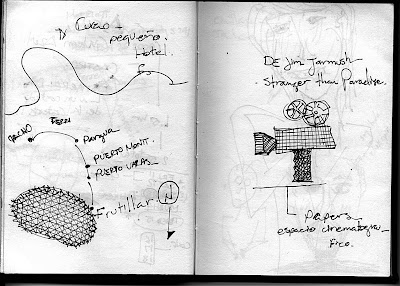 Cucao_
pequeño
Hotel.
Pargua
PUERTO MONTT.
PUERTO VARAS_
Frutillar
N
DE Jim Jarmush
Stranger than Paradise.
papers
espacio cinematográ_
fico.